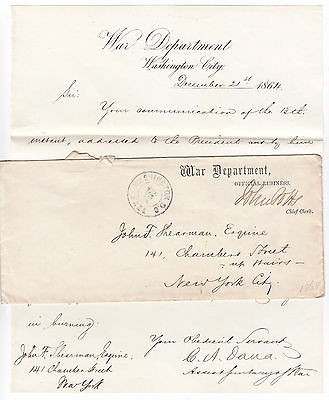 War Department
Washington City,
December 21st 1864
Sir:
Your communication of the 12th.
instant, addressed to the President
War Department,
OFFICIAL BUSINESS.
John Potts
Chief Clerk.
WASHINGTON D.C.
John F. Shearman, Esquire
141, Chambers Street
up stairs
New York City.
1864
in burning.
Your Obedient Servant
C. A. Dana.
Assist Secretary of War
John F. Shearman Esquire,
141 Chambers Street
New York